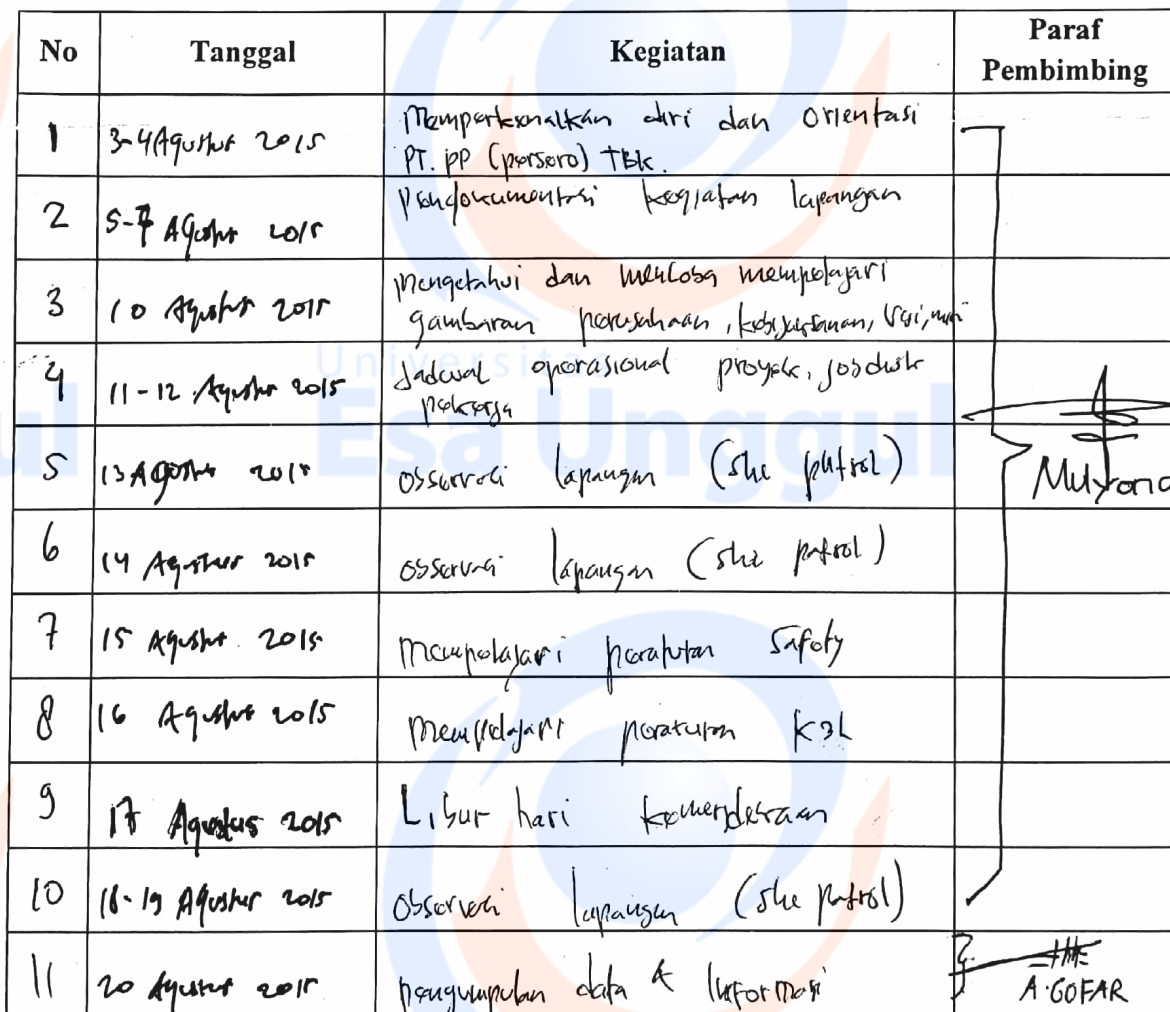 No Tanggal Kegiatan Paraf Pembimbing
1 3-4 Agustus 2015 Memperkenalkan diri dan Orientasi
PT. PP (persero) TBk.
2 5-7 Agustus 2015 Pendokumentasi kegiatan lapangan
3 10 Agustus 2015 Mengetahui dan mencoba mempelajari
gambaran perusahaan, kebijaksanaan, Visi, misi
4 11-12 Agustus 2015 Jadwal operasional proyek, jobdisk
pekerja
5 13 Agustus 2015 observasi lapangan (she patrol)
Mulyono
6 14 Agustus 2015 observasi lapangan (she patrol)
7 15 Agustus 2015 mempelajari peraturan Safety
8 16 Agustus 2015 Mempelajari peraturan K3L
9 17 Agustus 2015 Libur hari kemerdekaan
10 18-19 Agustus 2015 observasi lapangan (she patrol)
11 20 Agustus 2015 pengumpulan data & Informasi
A.GOFAR
Universitas
Esa Unggul
ul